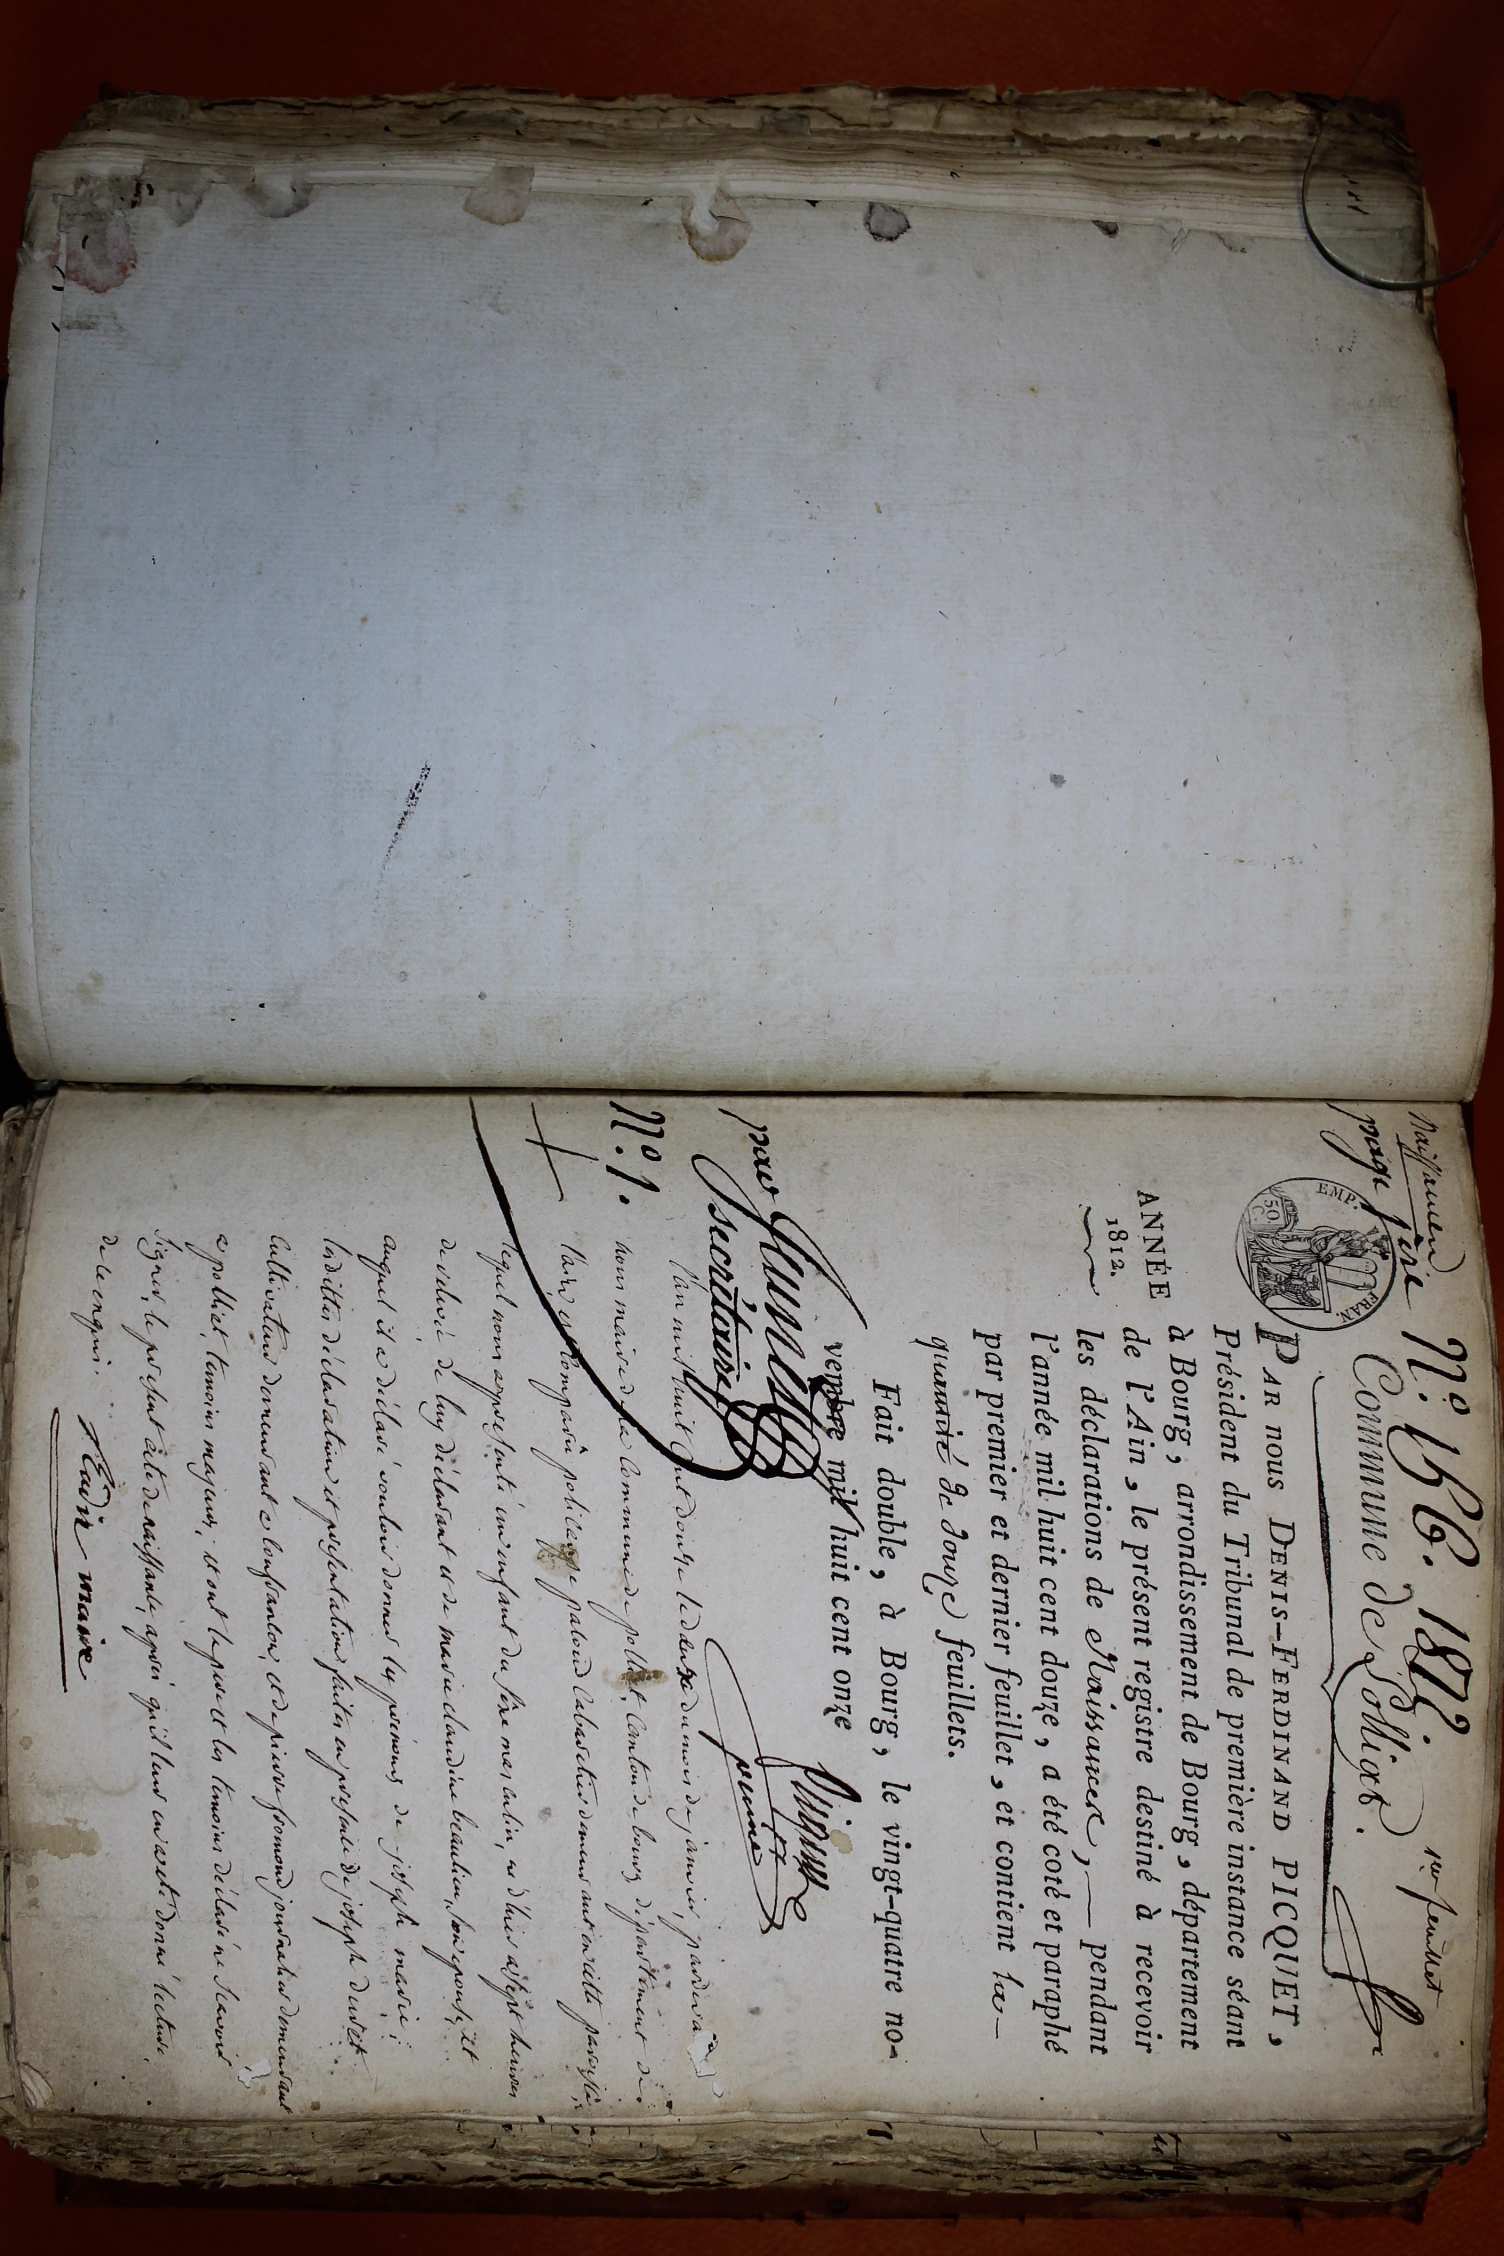 Naissances
page 1ère
N.º 156. 1812.
1er feuillet
Commune de Polliat.
EMP. FRAN.
50 C.
ANNÉE
1812.
PAR nous DENIS-FERDINAND PICQUET,
Président du Tribunal de première instance séant
à Bourg, arrondissement de Bourg, département
de l'Ain, le présent registre destiné à recevoir
les déclarations de Naissances, — pendant
l'année mil huit cent douze, a été coté et paraphé
par premier et dernier feuillet, et contient la
quantité de douze feuillets.
Fait double, à Bourg, le vingt-quatre no-
vembre mil huit cent onze
Picquet
par
secrétaire
N.º 1.
l'an mil huit cent douze le deux du mois de janvier, pardevant
nous maire de la commune de polliat, canton de bourg département de
l'ain, est comparu polieuse paloud cabaretier demeurant en cette paroisse,
lequel nous a présenté un enfant du sexe masculin, né d'hier à sept heures
de de luy déclarant et de marie claudine beaulieu, son épouse, et
auquel il a déclaré vouloir donner les prénoms de joseph marie;
les dittes déclaration et présentation faites en présence de joseph duret
cultivateur demeurant a confranson, et de pierre fromond journalier demeurant
a polliat, temoins majeurs, et ont le père et les temoins déclaré ne scavoir
signer, le présent acte de naissance, après qu'il leur en a eté donné lecture,
de ce enquis.
maire